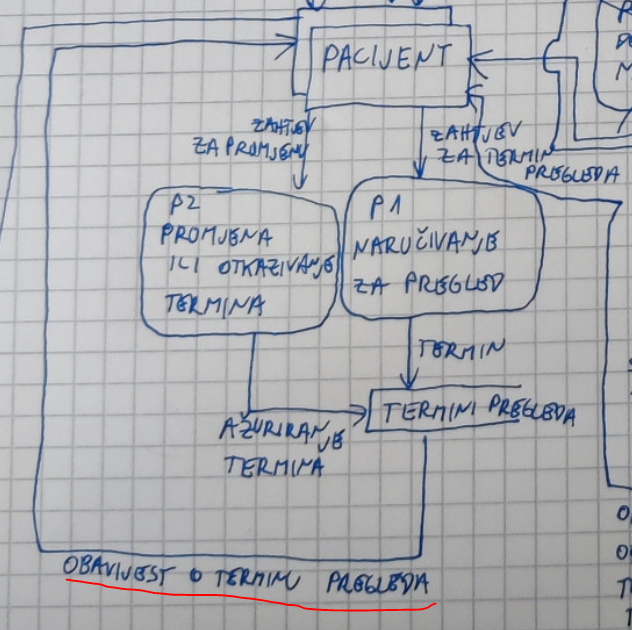 PACIJENT
ZAHTJEV
ZA PROMJENU
ZAHTJEV
ZA TERMIN
PREGLEDA
P2
PROMJENA
ILI OTKAZIVANJE
TERMINA
P1
NARUČIVANJE
ZA PREGLED
TERMIN
TERMINI PREGLEDA
AŽURIRANJE
TERMINA
OBAVIJEST O TERMINU PREGLEDA